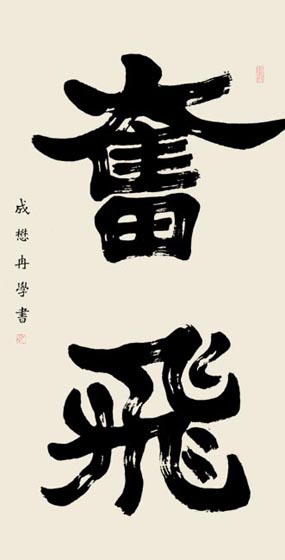 奮飛
成懋冉學書